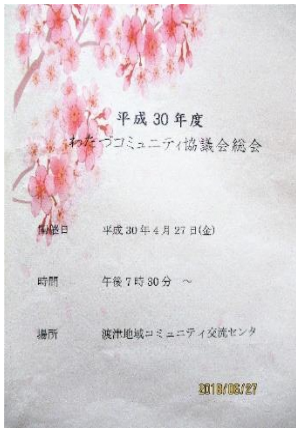 平成30年度
わたづコミュニティ協議会総会
開催日 平成30年4月27日(金)
時間 午後7時30分 ~
場所 渡津地域コミュニティ交流センタ
2018/06/27